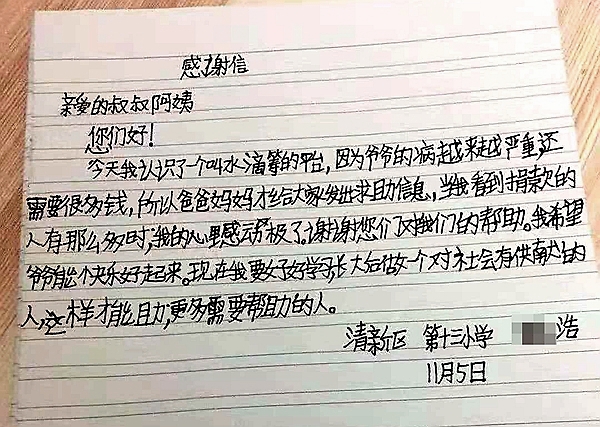 感谢信
亲爱的叔叔阿姨
您们好!
今天我认识了一个叫水滴筹的平台,因为爷爷的病越来越严重,还
需要很多钱,所以爸爸妈妈才给大家发出求助信息,当我看到捐款的
人有那么多时,我的心里感动极了。谢谢您们对我们的帮助。我希望
爷爷能个快乐好起来。现在我要好好学习,长大后做一个对社会有供献的
人,这样才能助更多需要帮助的人。
清新区 第十三小学 浩
11月5日